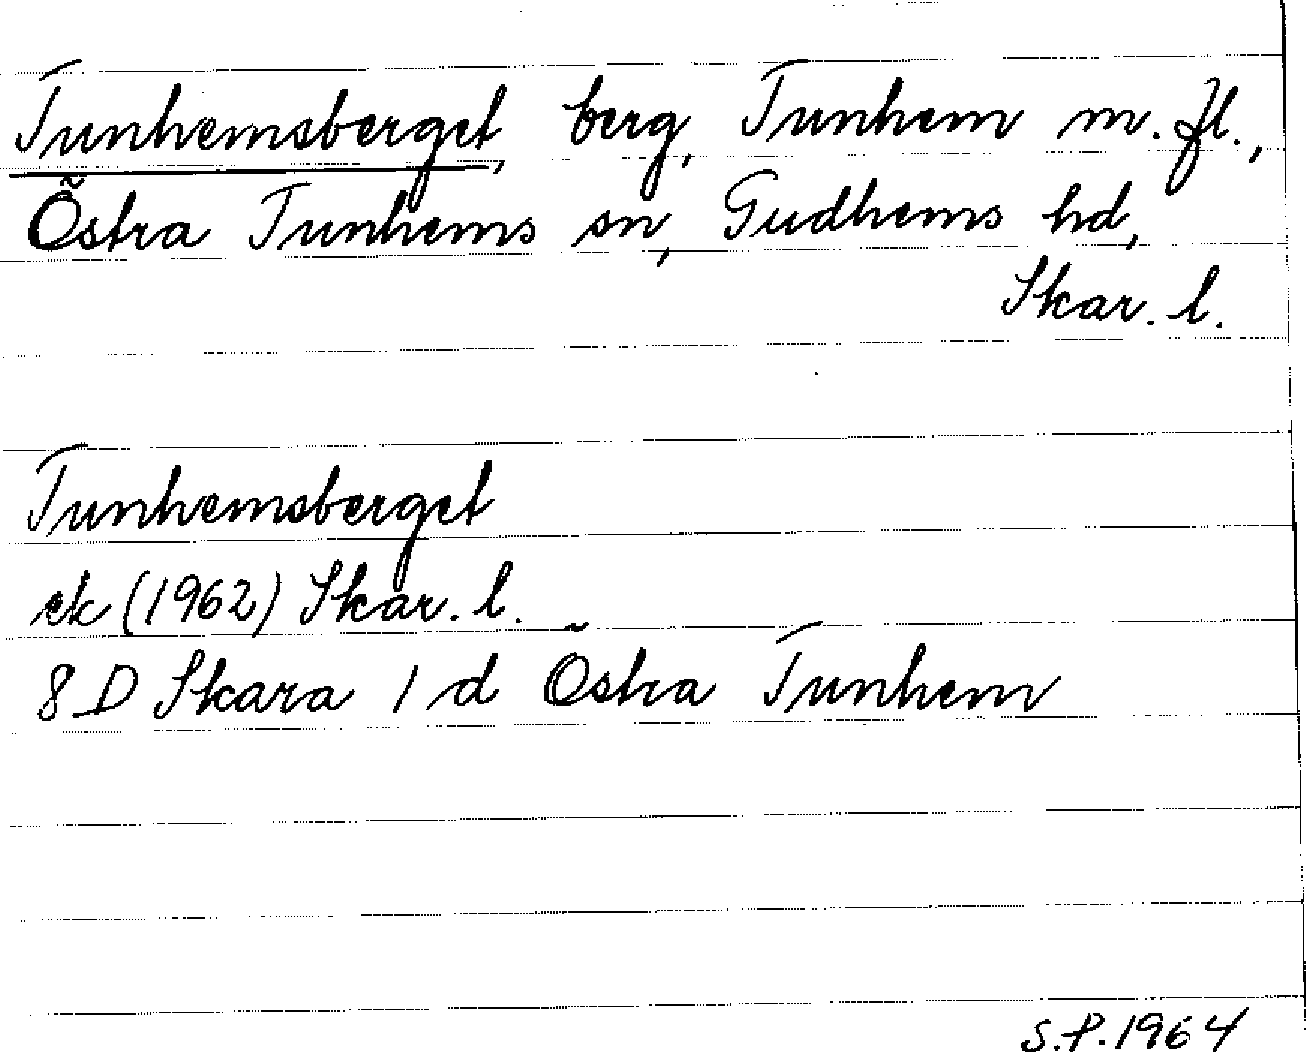 Tunhemsberget, berg, Tunhem m.fl.,
Östra Tunhems sn, Gudhems hd,
Skar. l.
Tunhemsberget
ek (1962) Skar. l.
8 D Skara 1 d Östra Tunhem
S.P. 1964